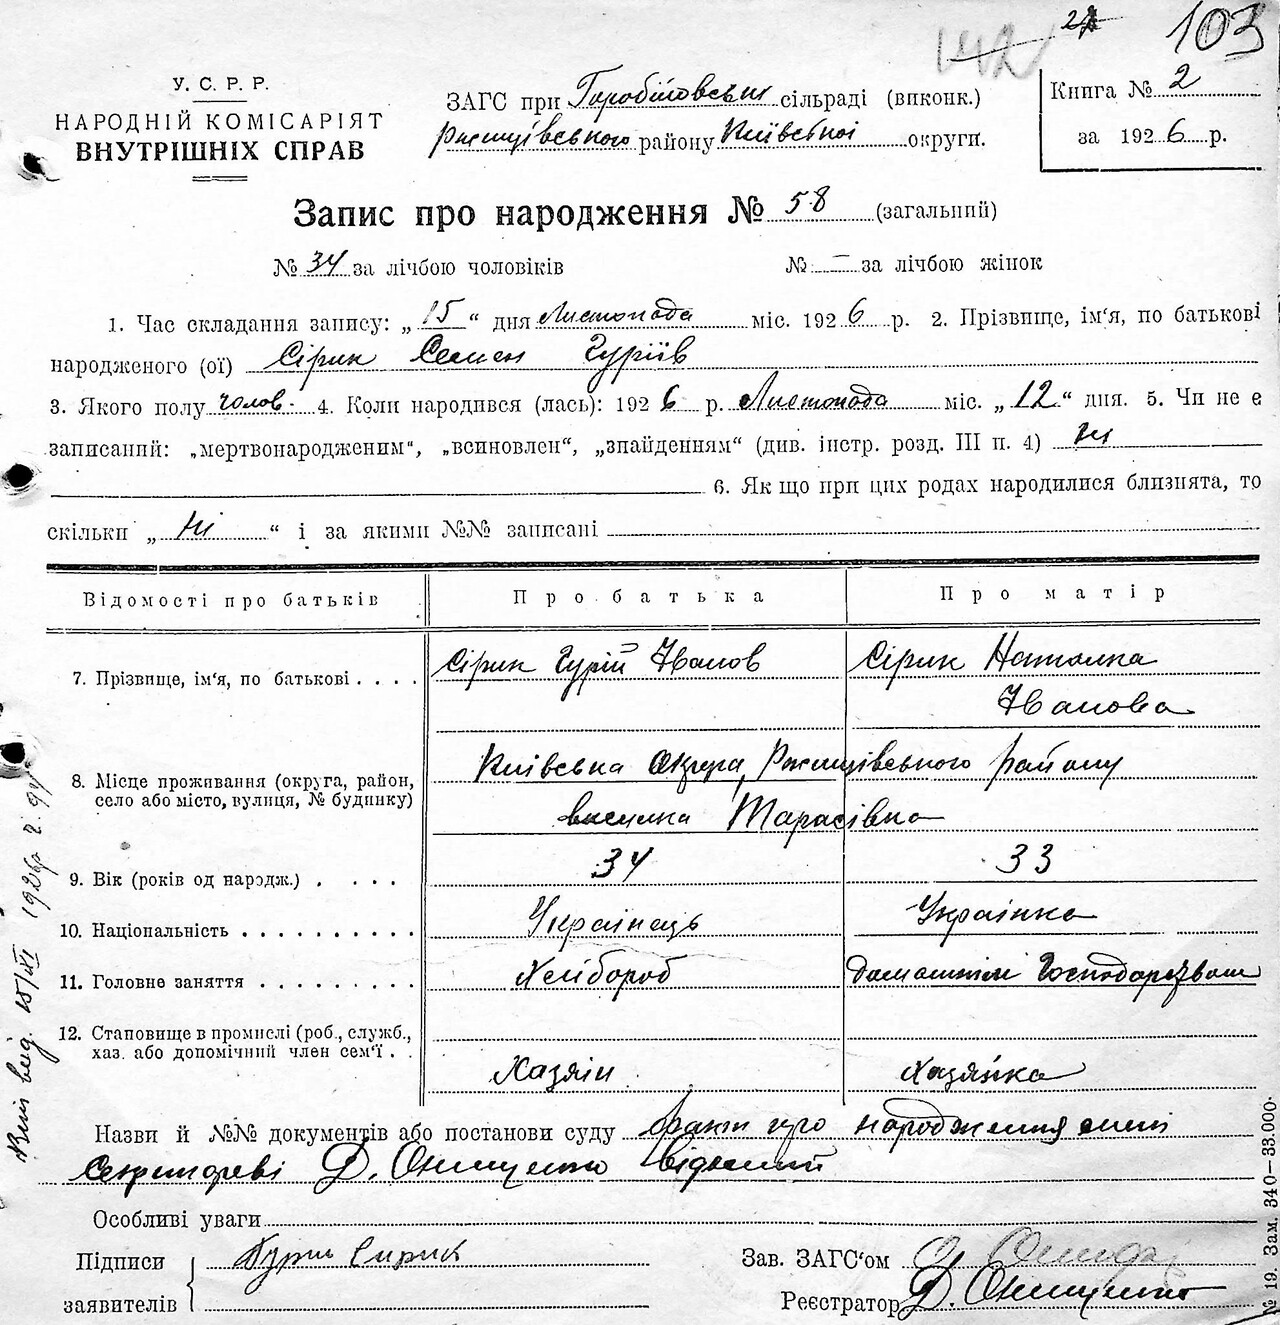 142 24 103
У. С. Р. Р.
НАРОДНІЙ КОМІСАРІЯТ
ВНУТРІШНІХ СПРАВ
ЗАГС при сільраді (виконк.)
Ржищівського району Київської округи.
Книга № 2
за 1926 р.
Запис про народження № 58 (загальний)
№ 34 за лічбою чоловіків № — за лічбою жінок
1. Час складання запису: „15“ дня Листопада міс. 1926 р. 2. Прізвище, ім'я, по батькові
народженого (ої) Сірик Семен Гуріїв
3. Якого полу чолов. 4. Коли народився (лась): 1926 р. Листопада міс. „12“ дня. 5. Чи не є
записаний: „мертвонародженим“, „всиновлен“, „знайденням“ (див. інстр. розд. III п. 4) Ні
6. Як що при цих родах народилися близнята, то
скільки „Ні“ і за якими №№ записані
Відомості про батьків Про батька Про матір
7. Прізвище, ім'я, по батькові . . . . Сірик Гурій Іванов Сірик Наталка
Іванова
8. Місце проживання (округа, район,
село або місто, вулиця, № будинку)
Київська округа, Ржищівського району
висилка Тарасівка
9. Вік (років од народж.) . . . . 34 33
10. Національність . . . . . . . . . . Українець Українка
11. Головне заняття . . . . . . . . . Хлібороб домашнім
12. Становище в промислі (роб., служб.,
хаз. або допомічний член сем'ї . .
Хазяін Хазяйка
Назви й №№ документів або постанови суду факт про народження мені
секритареві Д. Онищенко відомий
Особливі уваги
Підписи
заявителів
Гурій Сирик
Зав. ЗАГС'ом
Реєстратор Д. Онищенко
№ 19. Зам. 340—33.000.
вид. 15/XI 1926 р.